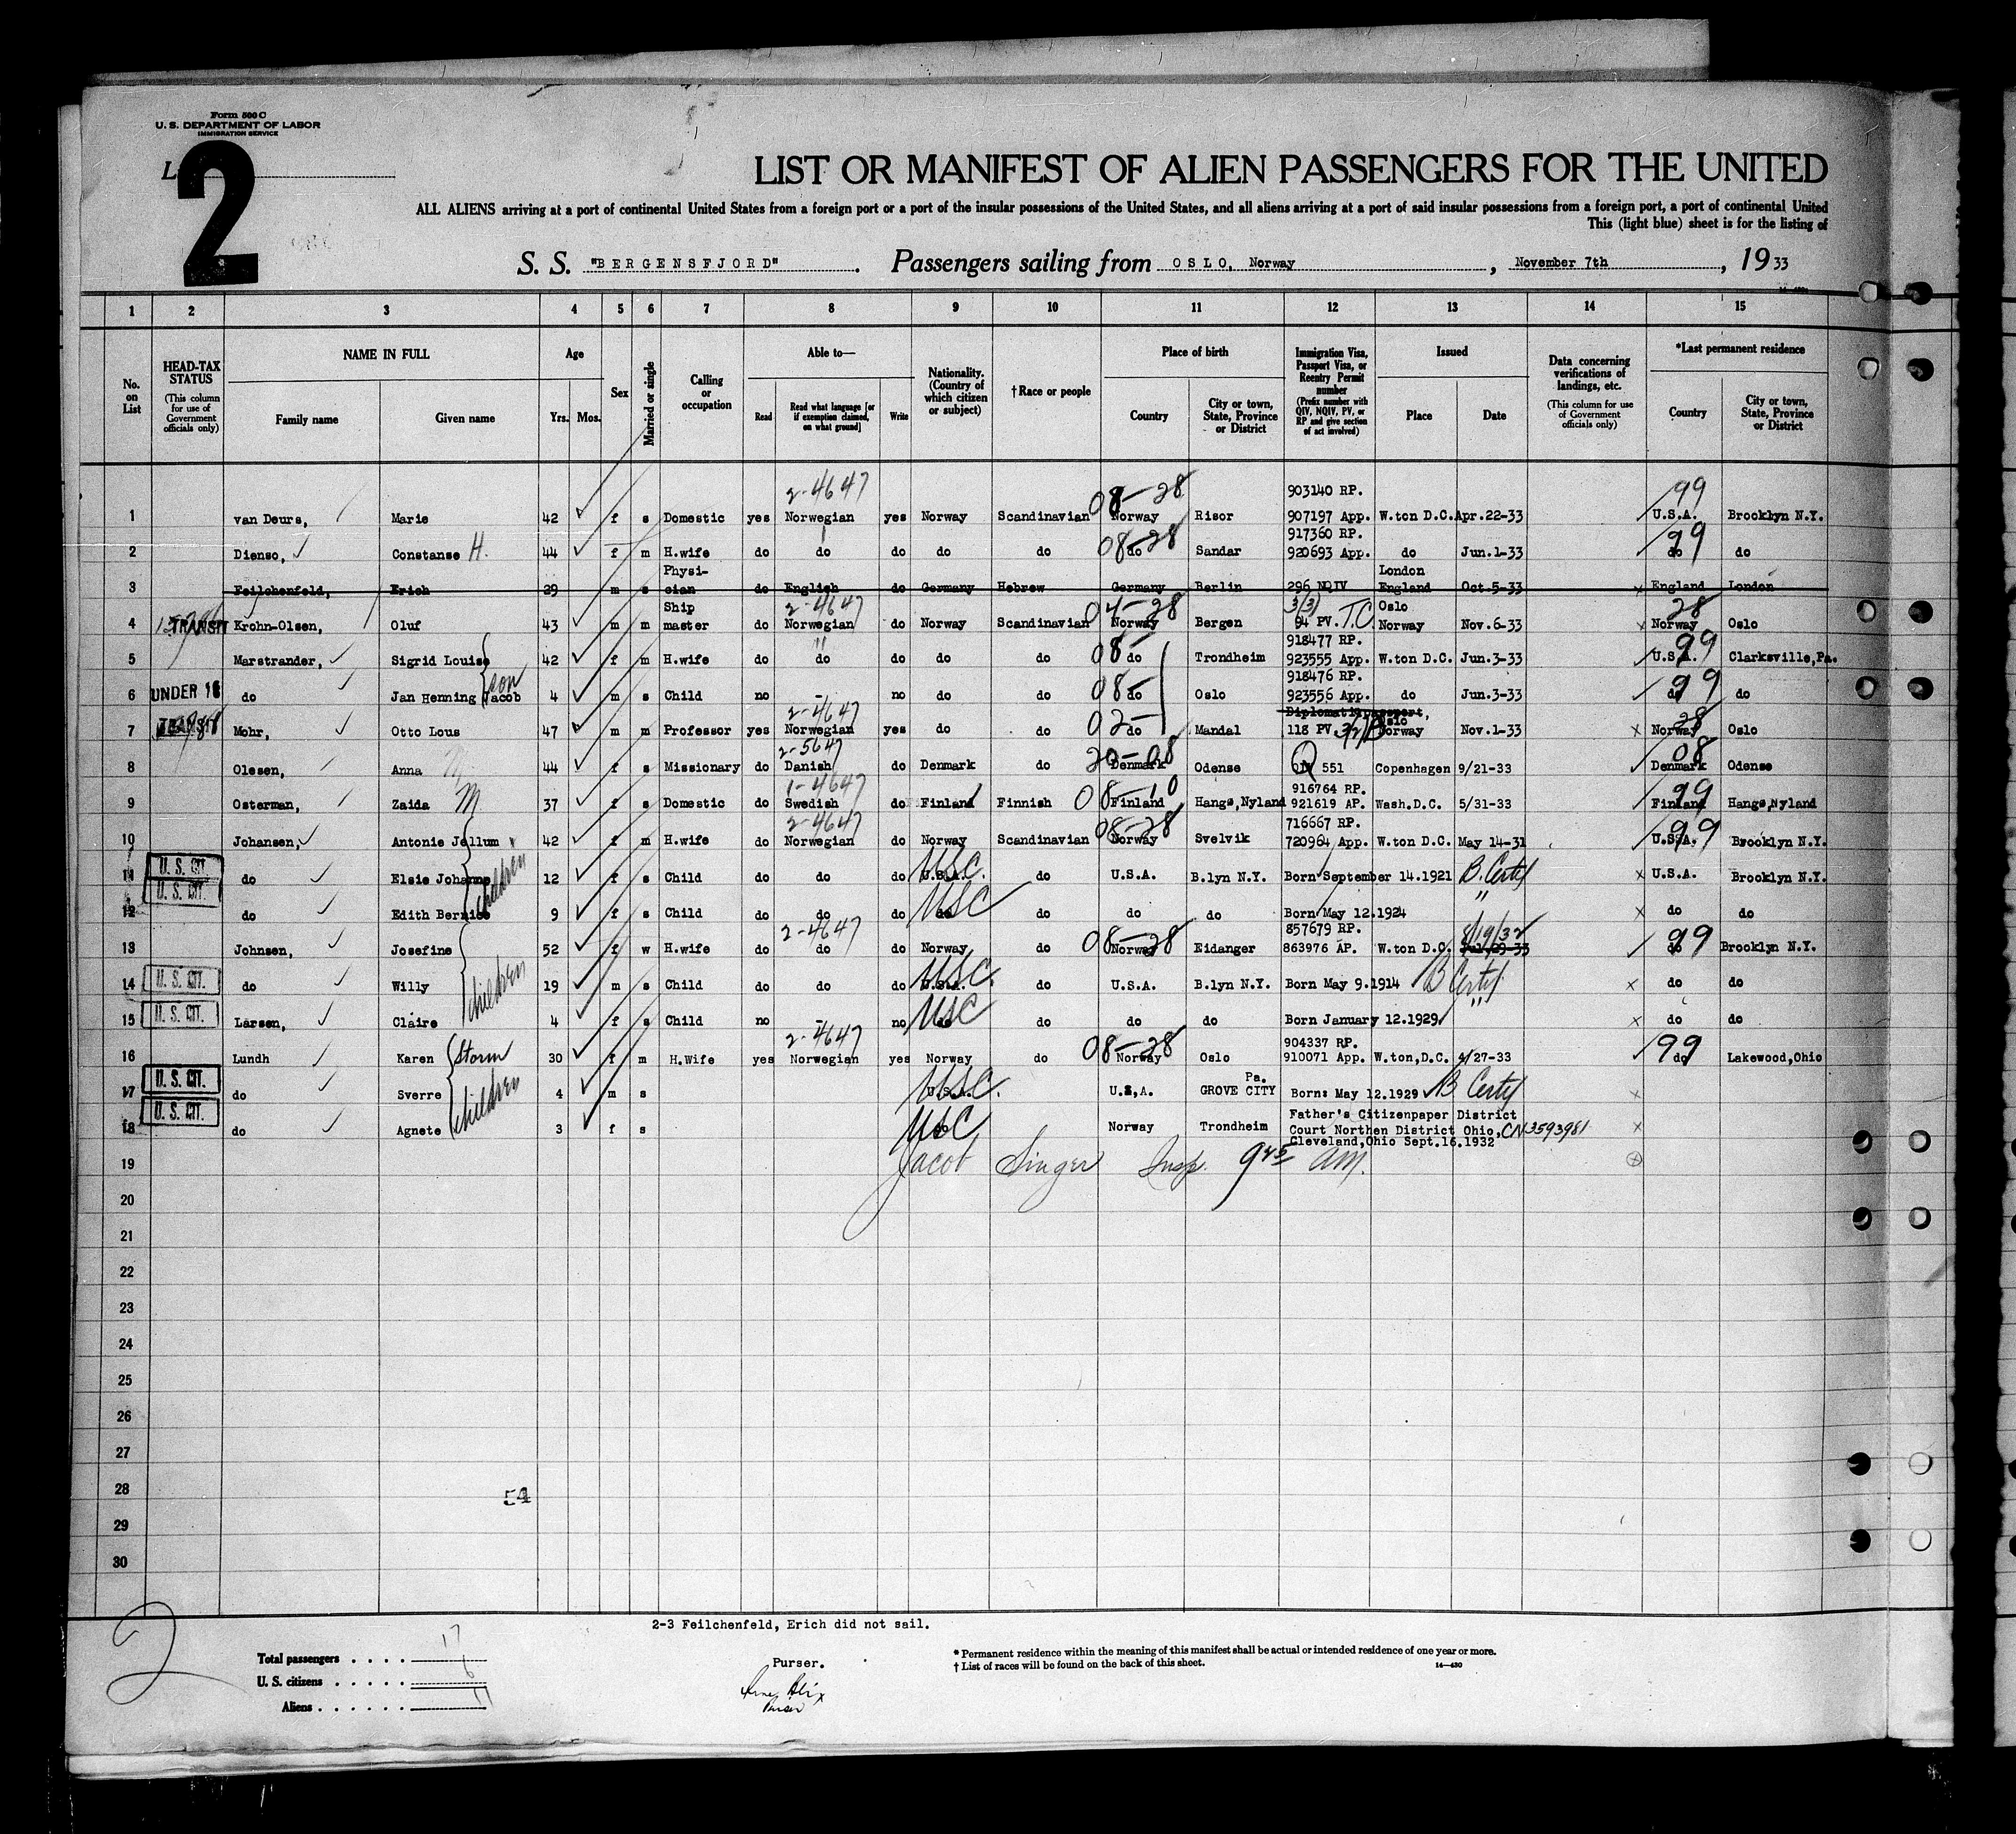 Form 500 C
U. S. DEPARTMENT OF LABOR
IMMIGRATION SERVICE
2
LIST OR MANIFEST OF ALIEN PASSENGERS FOR THE UNITED
ALL ALIENS arriving at a port of continental United States from a foreign port or a port of the insular possessions of the United States, and all aliens arriving at a port of said insular possessions from a foreign port, a port of continental United
This (light blue) sheet is for the listing of
S. S. "BERGENSFJORD". Passengers sailing from OSLO, Norway, November 7th, 19 33
1 2 3 4 5 6 7 8 9 10 11 12 13 14 15
No. on List
HEAD-TAX STATUS (This column for use of Government officials only)
NAME IN FULL Family name Given name
Age Yrs. Mos.
Sex
Married or single
Calling or occupation
Able to— Read Read what language [or if exemption claimed, on what ground] Write
Nationality. (Country of which citizen or subject)
†Race or people
Place of birth Country City or town, State, Province or District
Immigration Visa, Passport Visa, or Reentry Permit number (Prefix number with QIV, NQIV, PV, or RP and give section of act involved)
Issued Place Date
Data concerning verifications of landings, etc. (This column for use of Government officials only)
*Last permanent residence Country City or town, State, Province or District
2-4647 08-28 903140 RP. 99
1 van Deurs, Marie 42 f s Domestic yes Norwegian yes Norway Scandinavian Norway Risor 907197 App. W.ton D.C. Apr.22-33 U.S.A. Brooklyn N.Y.
917360 RP.
2 Dienso, Constanse H. 44 f m H.wife do do do do do 08 do 28 Sandar 920693 App. do Jun.1-33 99 do do
Physi- London
3 Feilchenfeld, Erich 29 m s cian do English do Germany Hebrew Germany Berlin 296 NQIV England Oct.5-33 England London
Ship 2-4647 04-28 3(3) T.C. Oslo 28
4 TRANSIT Krohn-Olsen, Oluf 43 m m master do Norwegian do Norway Scandinavian Norway Bergen 94 PV. Norway Nov.6-33 Norway Oslo
918477 RP. 99
5 Marstrander, Sigrid Louise 42 f m H.wife do do do do do 08- do Trondheim 923555 App. W.ton D.C. Jun.3-33 U.S.A. Clarksville,Pa.
son 918476 RP.
6 UNDER 16 do Jan Henning Jacob 4 m s Child no - no do do 08- do Oslo 923556 App. do Jun.3-33 99 do do
TRANSIT 2-4647 Diplomatic passport, Oslo 28
7 Mohr, Otto Lous 47 m m Professor yes Norwegian yes do do 02- do Mandal 118 PV Norway Nov.1-33 Norway Oslo
2-5647 20-08 08
8 Olesen, Anna 44 f s Missionary do Danish do Denmark do Denmark Odense Q 551 Copenhagen 9/21-33 Denmark Odense
1-4647 08-10 916764 RP. 99
9 Osterman, Zaida M 37 f s Domestic do Swedish do Finland Finnish Finland Hangø,Nyland 921619 AP. Wash.D.C. 5/31-33 Finland Hangø,Nyland
2-4647 08-28 716667 RP. 99
10 Johansen, Antonie Jellum 42 f m H.wife do Norwegian do Norway Scandinavian Norway Svelvik 720964 App. W.ton D.C. May 14-31 U.S.A. Brooklyn N.Y.
U. S. CIT. children
11 do Elsie Johanne 12 f s Child do do do U.S.A. USC. do U.S.A. B.lyn N.Y. Born September 14.1921 B. Certf U.S.A. Brooklyn N.Y.
U. S. CIT.
12 do Edith Bernice 9 f s Child do do do do USC do do do Born May 12.1924 " do do
2-4647 08-28 857679 RP. 8/19/32 99
13 Johnsen, Josefine 52 f w H.wife do do do Norway do Norway Eidanger 863976 AP. W.ton D.C. Jul.29-33 do Brooklyn N.Y.
U. S. CIT. children
14 do Willy 19 m s Child do do do U.S.A. USC. do U.S.A. B.lyn N.Y. Born May 9.1914 B Certf do do
U. S. CIT.
15 Larsen, Claire 4 f s Child no - no do USC do do do Born January 12.1929 " do do
2-4647 08-28 904337 RP. 99
16 Lundh Karen Storm 30 f m H.Wife yes Norwegian yes Norway do Norway Oslo 910071 App. W.ton,D.C. 4/27-33 do Lakewood,Ohio
U. S. CIT. children Pa.
17 do Sverre 4 m s U.S.A. USC. U.S,A. GROVE CITY Born: May 12.1929 B Certf
U. S. CIT. Father's Citizenpaper District
18 do Agnete 3 f s do USC Norway Trondheim Court Northen District Ohio, CN 3593981
Cleveland,Ohio Sept.16.1932
19 Jacob Singer Insp. 9 45 am.
20
21
22
23
24
25
26
27
28
54
29
30
2-3 Feilchenfeld, Erich did not sail.
2
Total passengers . . . . 17
U. S. citizens . . . . . 6
Aliens . . . . . . 11
Purser.
Purser
* Permanent residence within the meaning of this manifest shall be actual or intended residence of one year or more.
† List of races will be found on the back of this sheet.
14—430